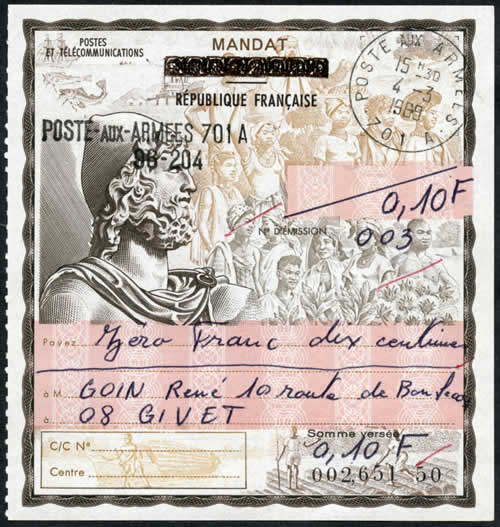 POSTES
ET TÉLÉCOMMUNICATIONS
MANDAT
RÉPUBLIQUE FRANÇAISE
POSTE AUX ARMÉES
15 H 30
4 - 3
701 A
POSTE-AUX-ARMEES 701A
98-204
0,10F
N° D'ÉMISSION
003
Payez Zéro Franc dix centimes
à M GOIN René 10 route de Bon
à 08 GIVET
Somme versée
C/C N°
0,10 F
Centre
002,651 50